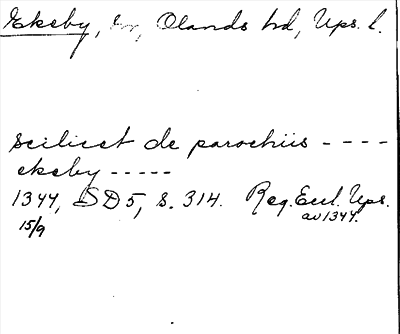 Ekeby, sn, Olands hd, Ups. l.
scilicet de parochiis - - - -
ekeby - - - - -
1344, SD 5, s. 314. Reg. Eccl. Ups.
15/9 av 1344.